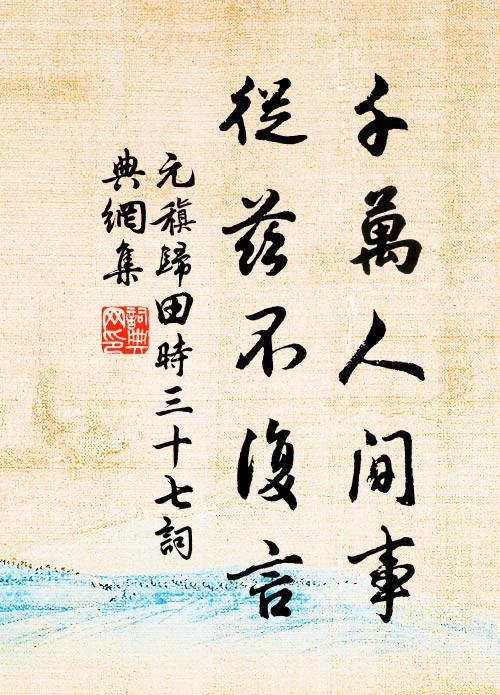 千萬人間事
從茲不復言
元稹歸田時三十七詞
典網集
詞典
网印